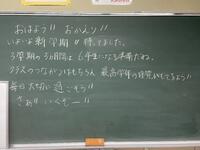 おはよう!! おかえり!!
いよいよ新学期!! 待ってました。
3学期の3カ月は 6年生になる準備だね。
クラスのつながりはもちろん 最高学年の自覚がもてるよう!!
毎日 大切に 過ごそう
さぁ!! いくぞー!!